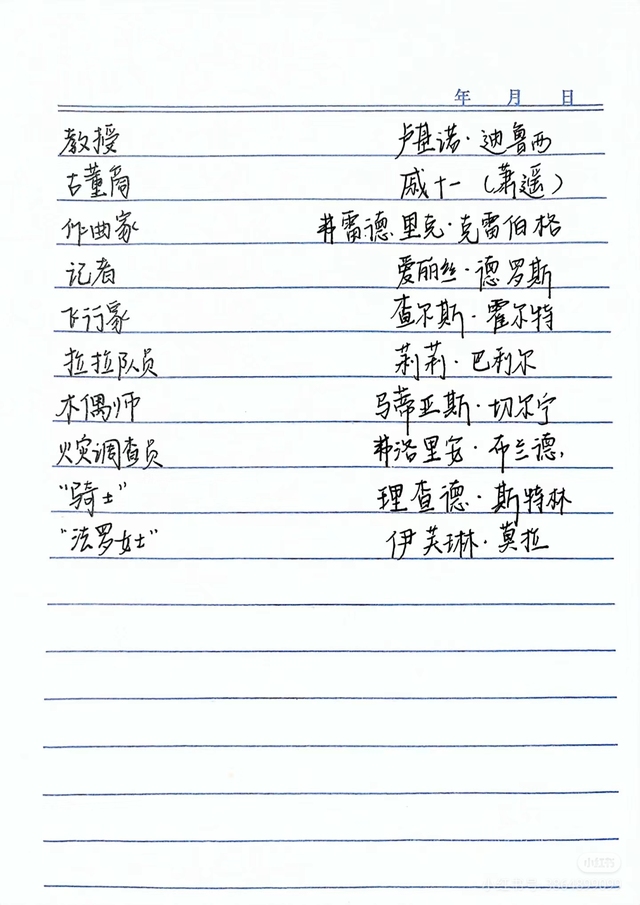 年 月 日
教授 卢基诺·迪鲁西
古董商 戚十一（萧遥）
作曲家 弗雷德里克·克雷伯格
记者 爱丽丝·德罗斯
飞行家 查尔斯·霍尔特
拉拉队员 莉莉·巴利尔
木偶师 马蒂亚斯·切尔宁
火灾调查员 弗洛里安·布兰德
“骑士” 理查德·斯特林
“法罗女士” 伊芙琳·莫拉
小红书